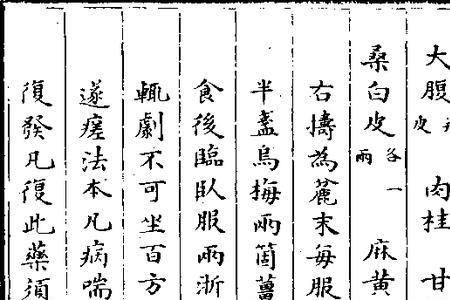 大腹皮 肉桂 甘
桑白皮各一兩 麻黄
右擣為麄末每服
半盞烏梅兩箇薑
食後臨臥服兩浙
輒劇不可坐百方
遂瘥法本凡病喘
復發凡復此藥須